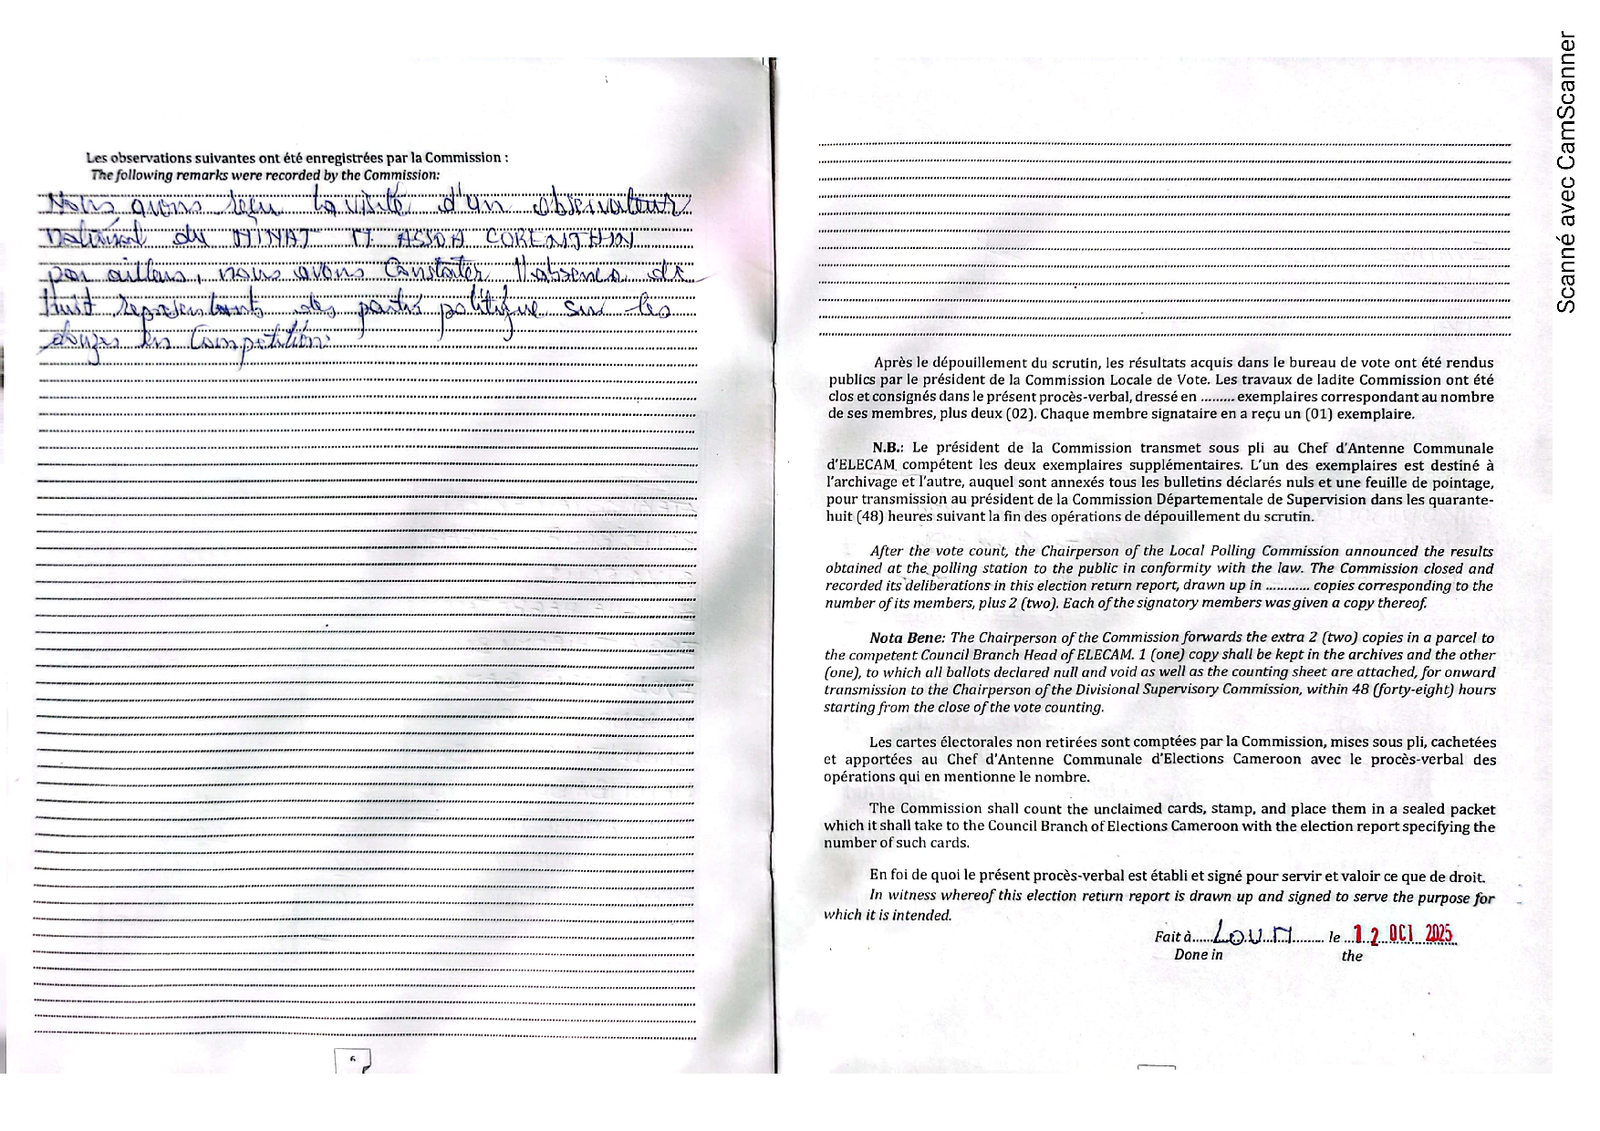 Les observations suivantes ont été enregistrées par la Commission :
The following remarks were recorded by the Commission:
Nous avons reçu la visite d'un observateur
national du MINAT M. ASSOA CORENTHIN
par ailleurs, nous avons constater l'absence de
huit representants des partis politique sur les
douzes en Compétition.
6
Après le dépouillement du scrutin, les résultats acquis dans le bureau de vote ont été rendus
publics par le président de la Commission Locale de Vote. Les travaux de ladite Commission ont été
clos et consignés dans le présent procès-verbal, dressé en ......... exemplaires correspondant au nombre
de ses membres, plus deux (02). Chaque membre signataire en a reçu un (01) exemplaire.
N.B.: Le président de la Commission transmet sous pli au Chef d'Antenne Communale
d'ELECAM compétent les deux exemplaires supplémentaires. L'un des exemplaires est destiné à
l'archivage et l'autre, auquel sont annexés tous les bulletins déclarés nuls et une feuille de pointage,
pour transmission au président de la Commission Départementale de Supervision dans les quarante-
huit (48) heures suivant la fin des opérations de dépouillement du scrutin.
After the vote count, the Chairperson of the Local Polling Commission announced the results
obtained at the polling station to the public in conformity with the law. The Commission closed and
recorded its deliberations in this election return report, drawn up in ........... copies corresponding to the
number of its members, plus 2 (two). Each of the signatory members was given a copy thereof.
Nota Bene: The Chairperson of the Commission forwards the extra 2 (two) copies in a parcel to
the competent Council Branch Head of ELECAM. 1 (one) copy shall be kept in the archives and the other
(one), to which all ballots declared null and void as well as the counting sheet are attached, for onward
transmission to the Chairperson of the Divisional Supervisory Commission, within 48 (forty-eight) hours
starting from the close of the vote counting.
Les cartes électorales non retirées sont comptées par la Commission, mises sous pli, cachetées
et apportées au Chef d'Antenne Communale d'Elections Cameroon avec le procès-verbal des
opérations qui en mentionne le nombre.
The Commission shall count the unclaimed cards, stamp, and place them in a sealed packet
which it shall take to the Council Branch of Elections Cameroon with the election report specifying the
number of such cards.
En foi de quoi le présent procès-verbal est établi et signé pour servir et valoir ce que de droit.
In witness whereof this election return report is drawn up and signed to serve the purpose for
which it is intended.
Fait à LOUM le 12 OCT 2025
Done in the
Scanné avec CamScanner